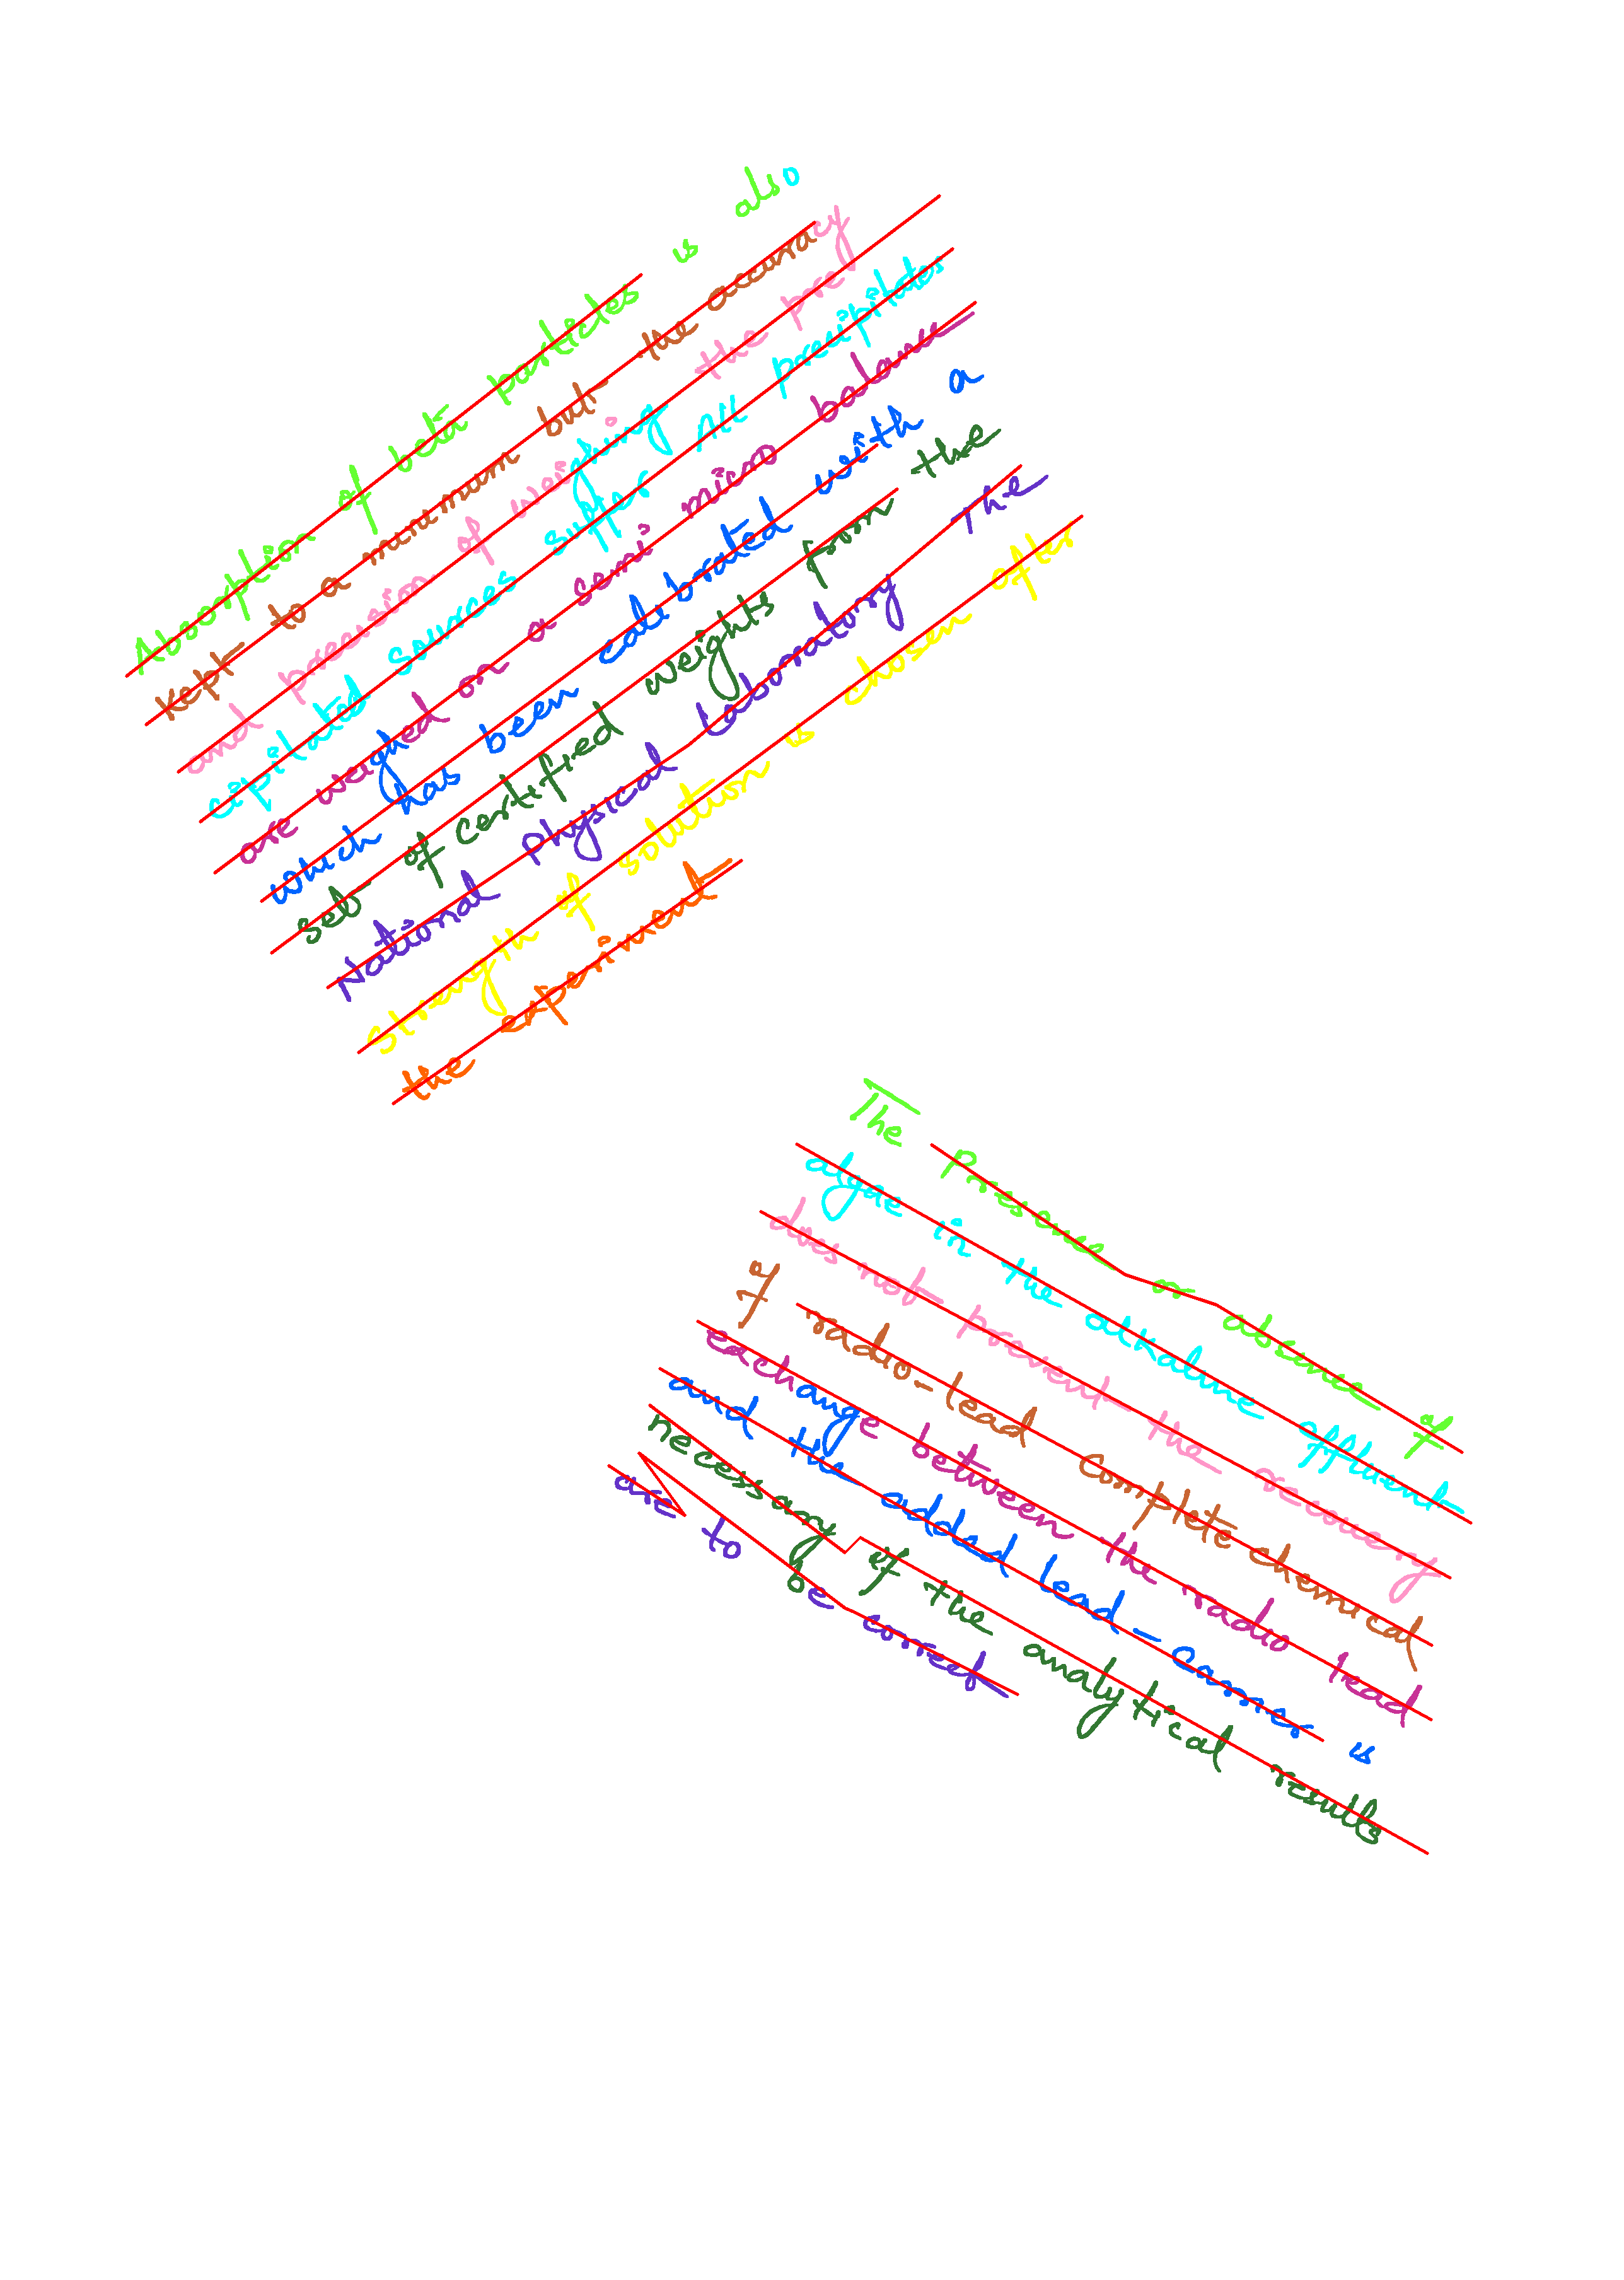 Absorption of beta particles is also
kept to a minimum but the accuracy
and precision of weighing the prey
cipitated sources suffer All precipitates
are weighed on a semi micro balance
which has been calibrated with a
set of certified weights from the
National Physical Laboratory The
strength of solution is chosen after
the experiment
The Presence or absence of
dyne in the alkaline effluent
does not prevent the recovery
of radio-lead complete chemical
exchange between the radio lead
and the added lead-carrier is
necessary if the analytical results
are to be correct